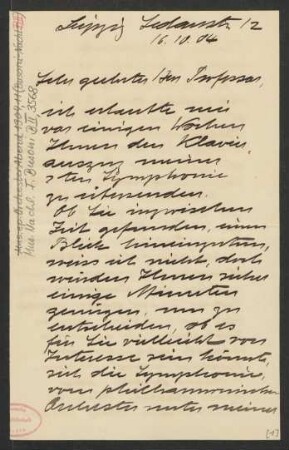 Leipzig Sedanstr. 12
16.10.04
Sehr geehrter Herr Professor,
ich erlaubte mir
vor einigen Wochen
Ihnen den Klavier-
auszug meiner
sten Symphonie
zu übersenden.
Ob Sie inzwischen
Zeit gefunden, einen
Blick hineinzutun,
weiss ich nicht, doch
würden Ihnen sicher
einige Minuten
genügen, um zu
entscheiden, ob es
für Sie vielleicht von
Interesse sein könnte,
sich die Symphonie
vom philharmonischen
Orchester unter meiner
Mus. Nachl. F. Busoni B II, 3568
[1]